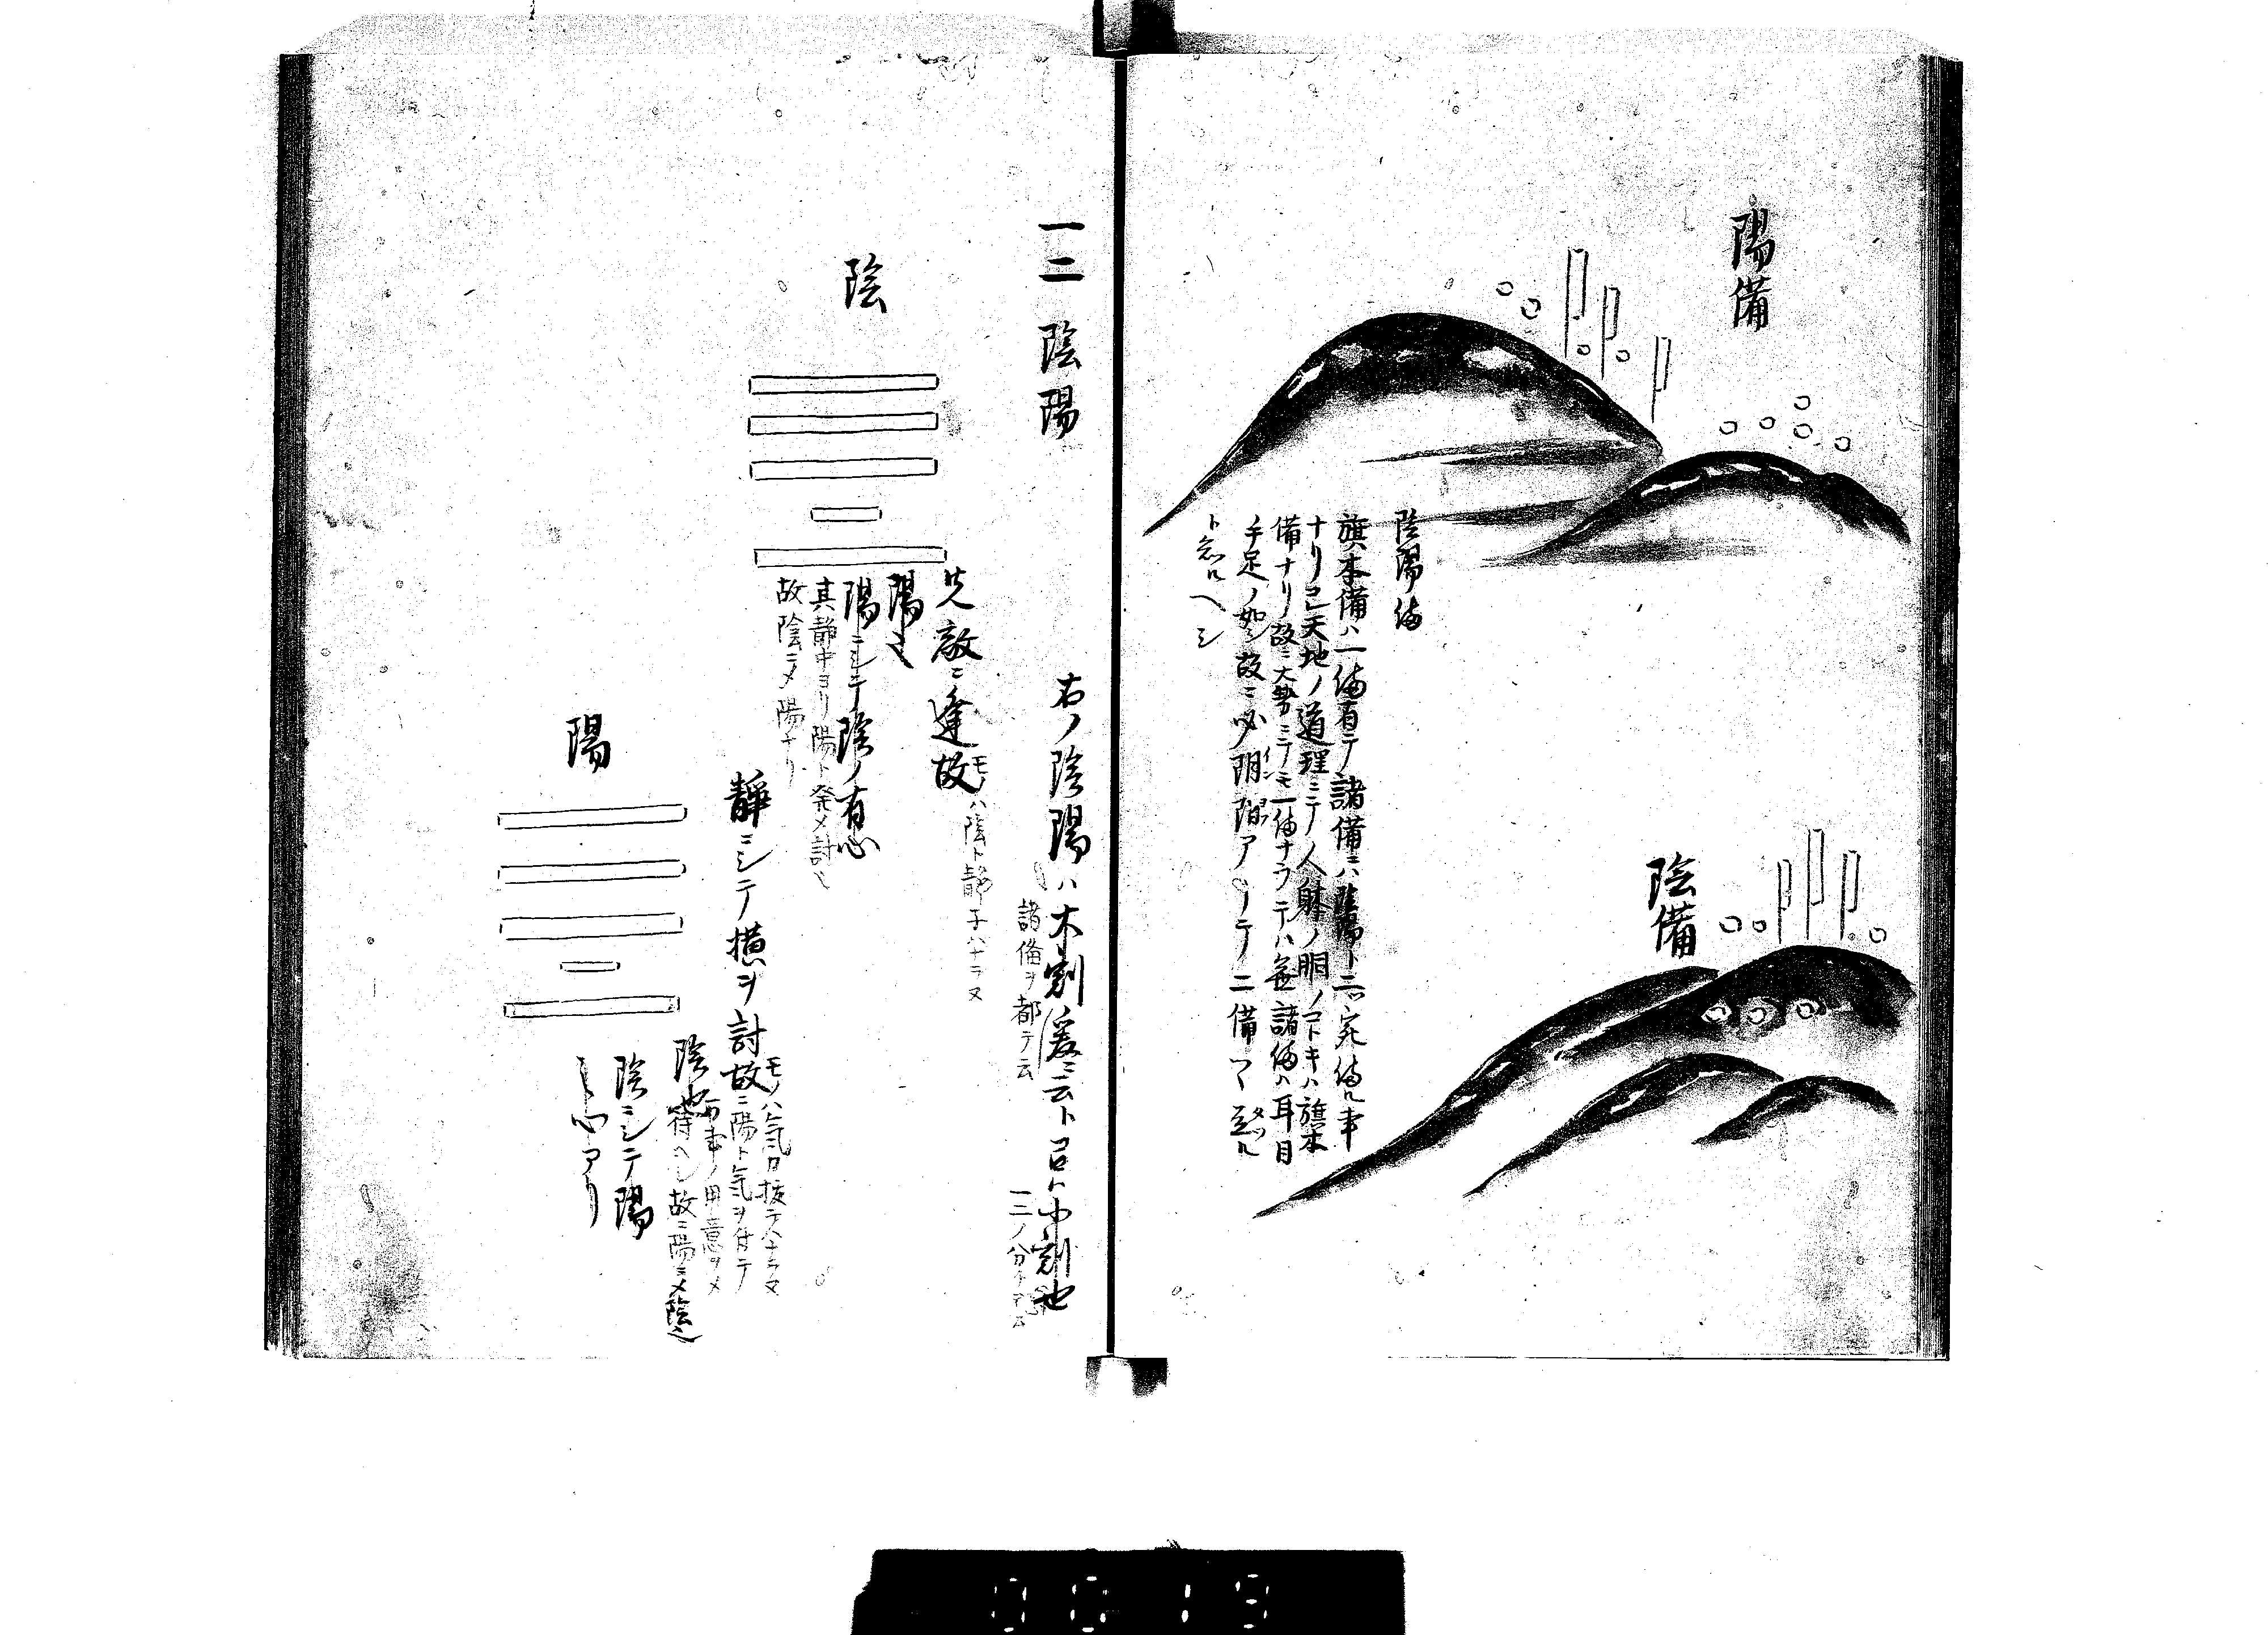 陽備
陰陽備
旗本備ハ一備有テ諸備ニハ陰陽ト二ツ宛備ル事
ナリ已天地ノ道理ニテ人躰ノ胴ノコトキハ旗本
備ナリ故ニ大勢ニテモ一備ナラテハ無諸備ハ耳目
手足ノ如シ故ニ必ノ陰陽アリテ二備ツヽ立ル
ト念ルヘシ
陰備
一二陰陽
右ノ陰陽ハ木割
云ト口ハ小割也
諸備ヲ都テ云
一二ノ分
陰
先敵ニ逢故
モノハ陰ト静テハナラヌ
陽也
陽ニシテ陰ノ有心
其静中ヨリ陽ト発メ討也
故陰ニメ陽ナリ
陽
静ニシテ横ヲ討故
モノハ気カ抜テハナラヌ
ニ陽ト気ヲ付テ
ノ用意ヲメ
陰也
待ヘシ故ニ陽ニメ陰也
陰ニシテ陽
ノ心アリ
0019